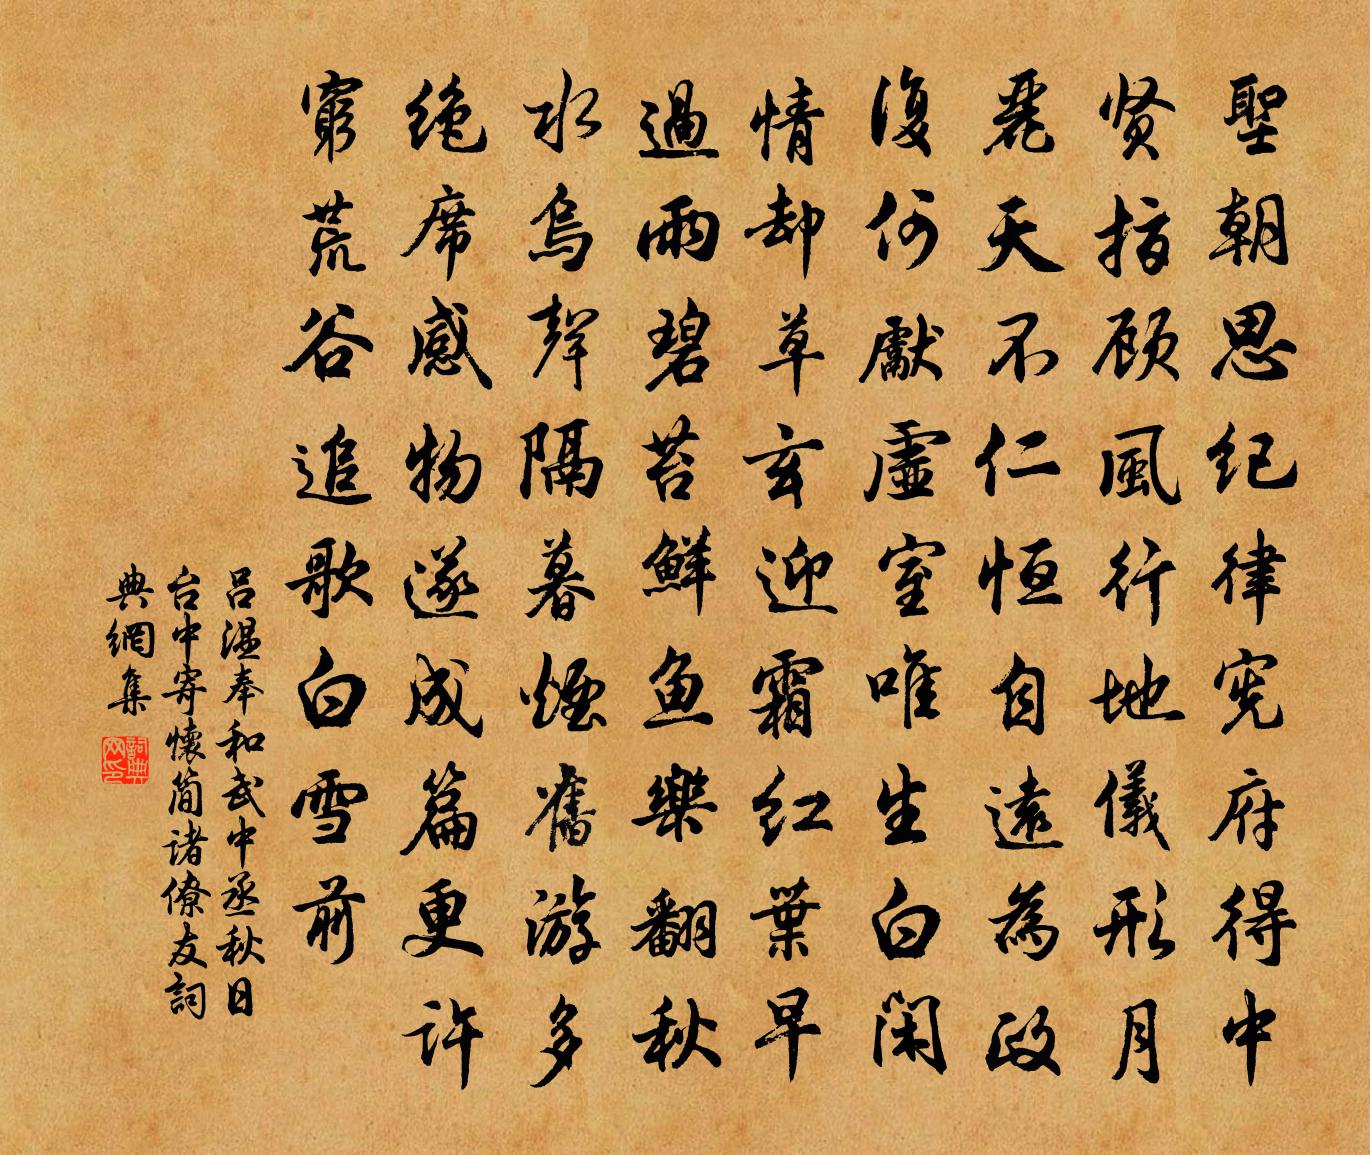 聖朝思紀律宪府得中
贤指顾風行地儀形月
麗天不仁恒自遠為政
復何獻虛室唯生白閑
情却草玄迎霜红葉早
過雨碧苔鮮鱼樂翻秋
水烏聲隔暮煙舊游多
绝席感物遂成篇更许
窮荒谷追歌白雪前
吕温奉和武中丞秋日
台中寄懷简诸僚友詞
典網集
詞典网印